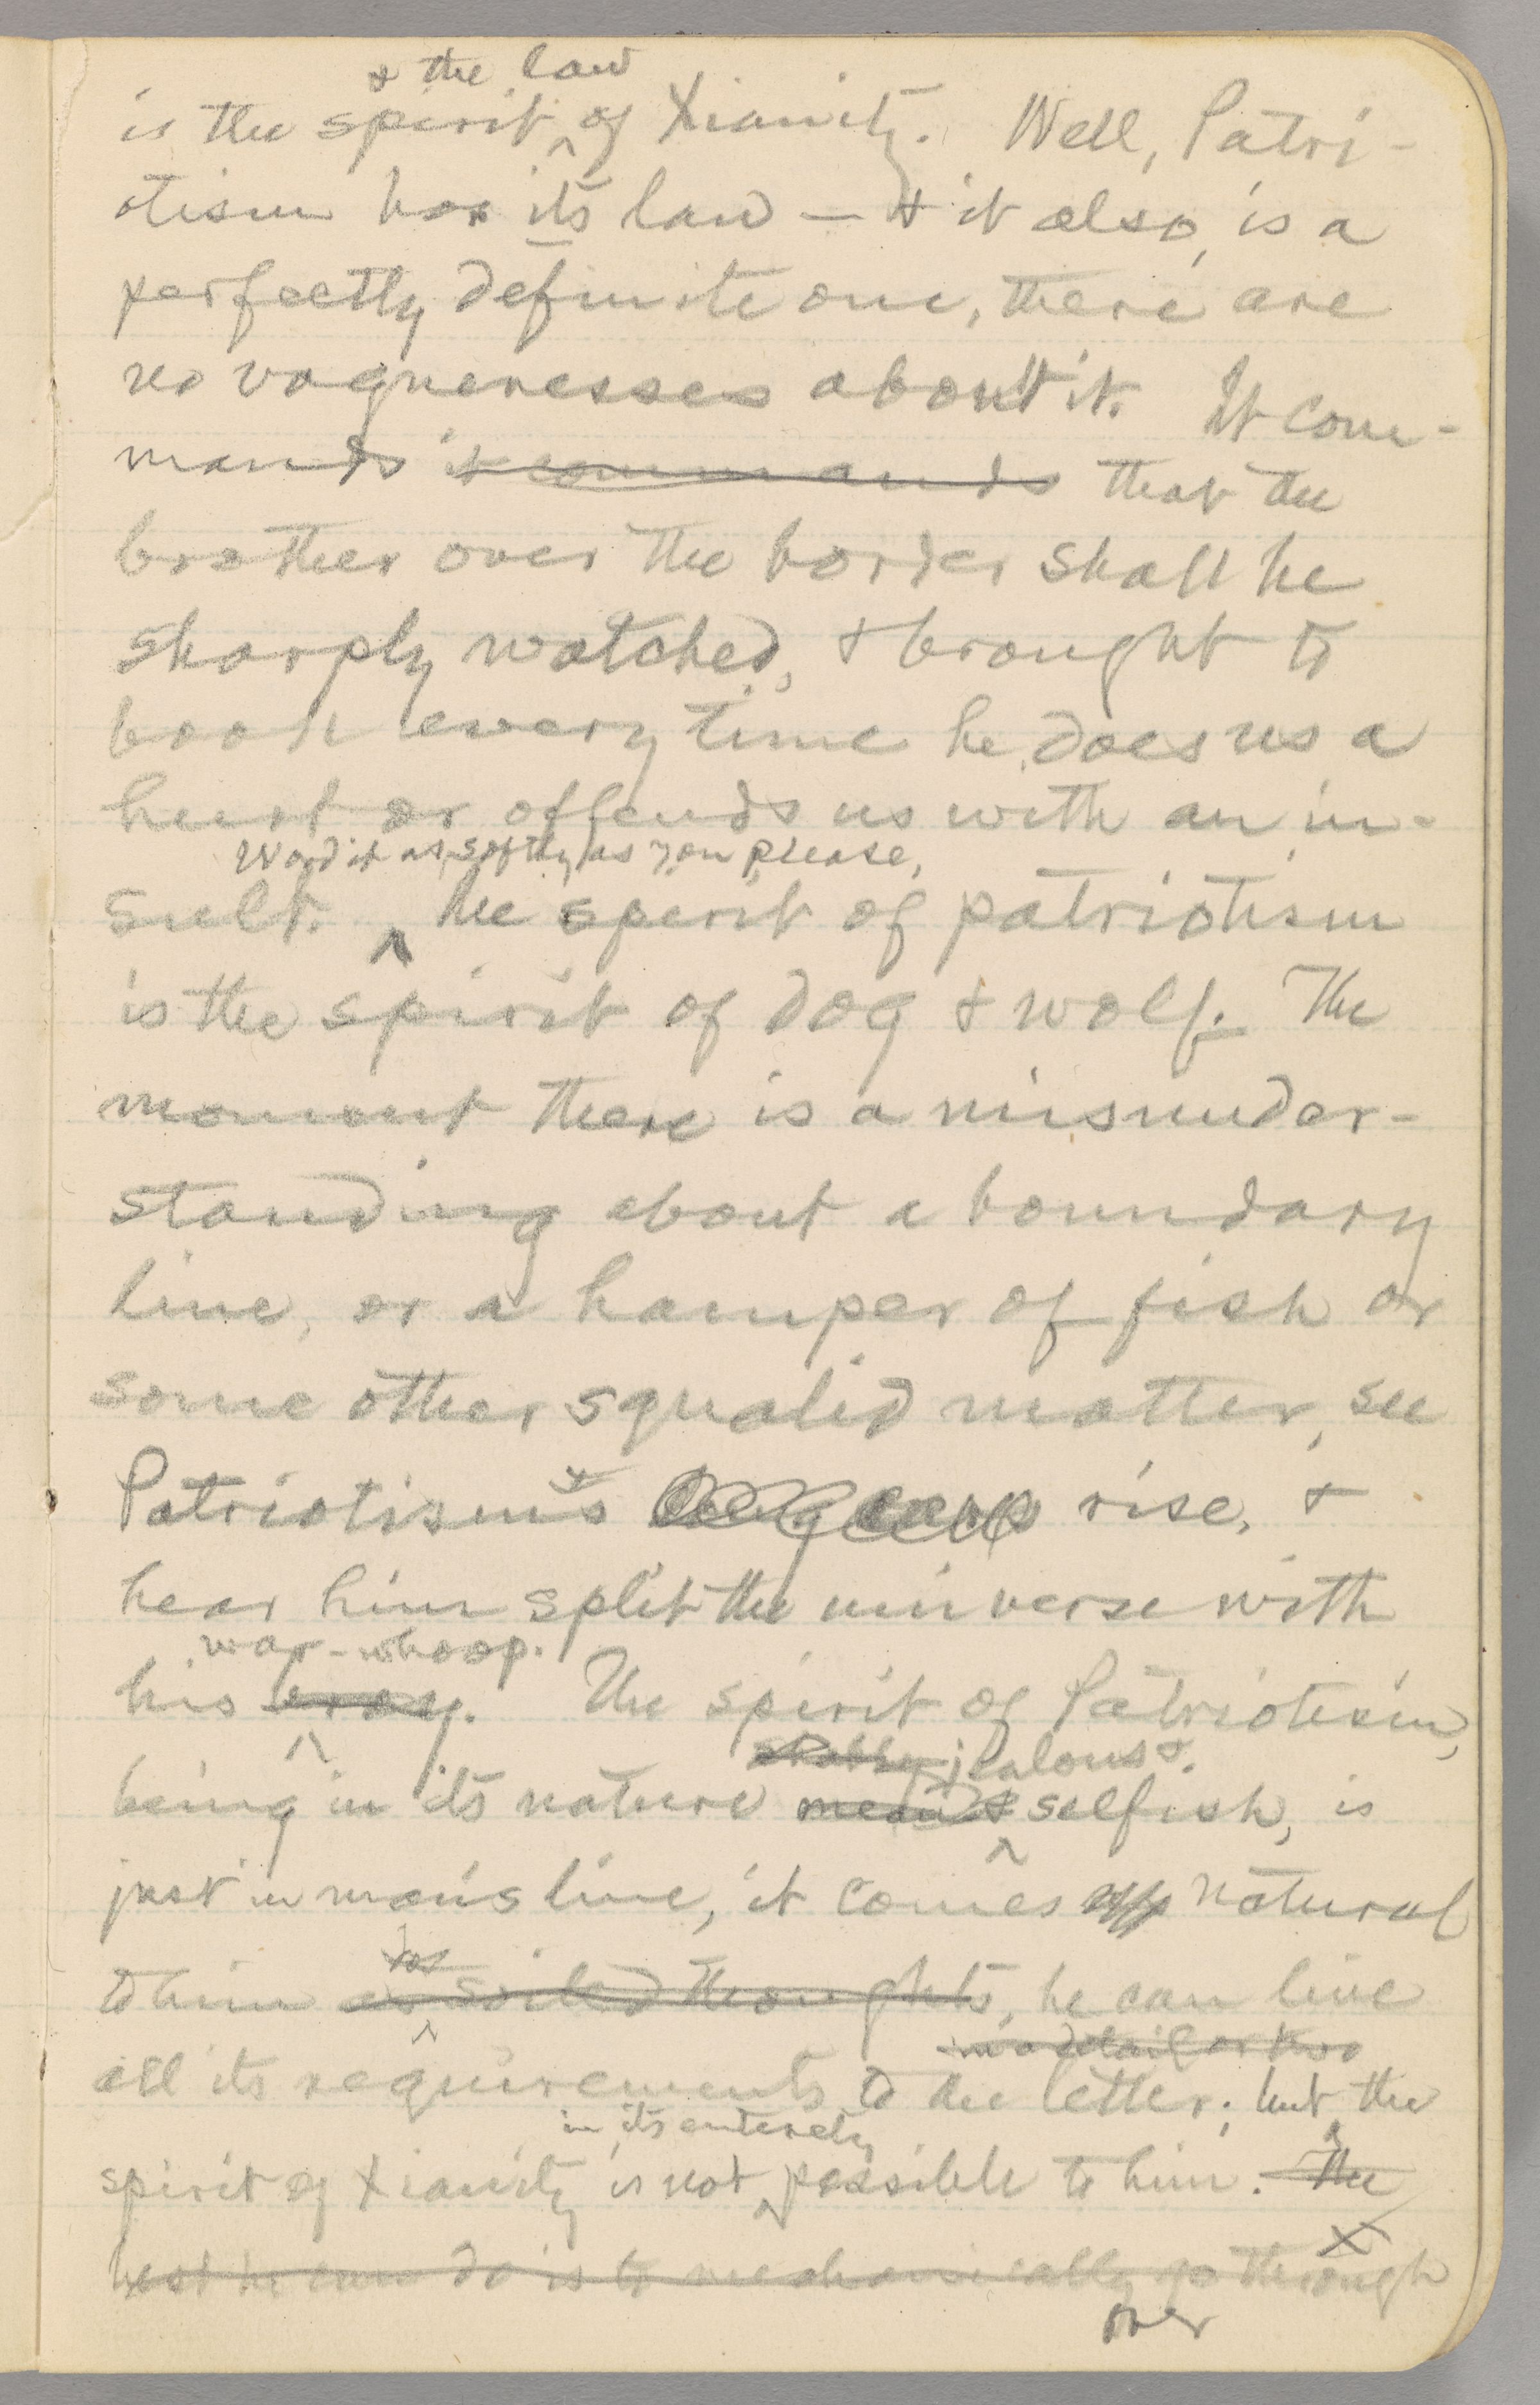 & the law
is the spirit ^ of Xianity. Well, Patri-
otism has its law — & it also, is a
perfectly definite one, there are
no vaguenesses about it. It com-
mands it commands that the
brother over the border shall be
sharply watched, & brought to
book every time he does us a
hurt or offends us with an in-
Word it as softly as you please,
sult. ^ the spirit of patriotism
is the spirit of dog & wolf. The
moment there is a misunder-
standing about a boundary
line, or a hamper of fish or
some other squalid matter, see
Patriotism's rise, &
hear him split the universe with
war-whoop.
his bray. ^ The spirit of Patriotism,
shabby jealous &
being in its nature mean & ^ selfish, is
just in man's line, it comes natural
to him as ^ soiled thoughts, he can live
in a detail or two
all its requirements to the letter; but the
in its entirety
spirit of Xianity is not ^ possible to him. The
best he can do is to mechanically go through
over